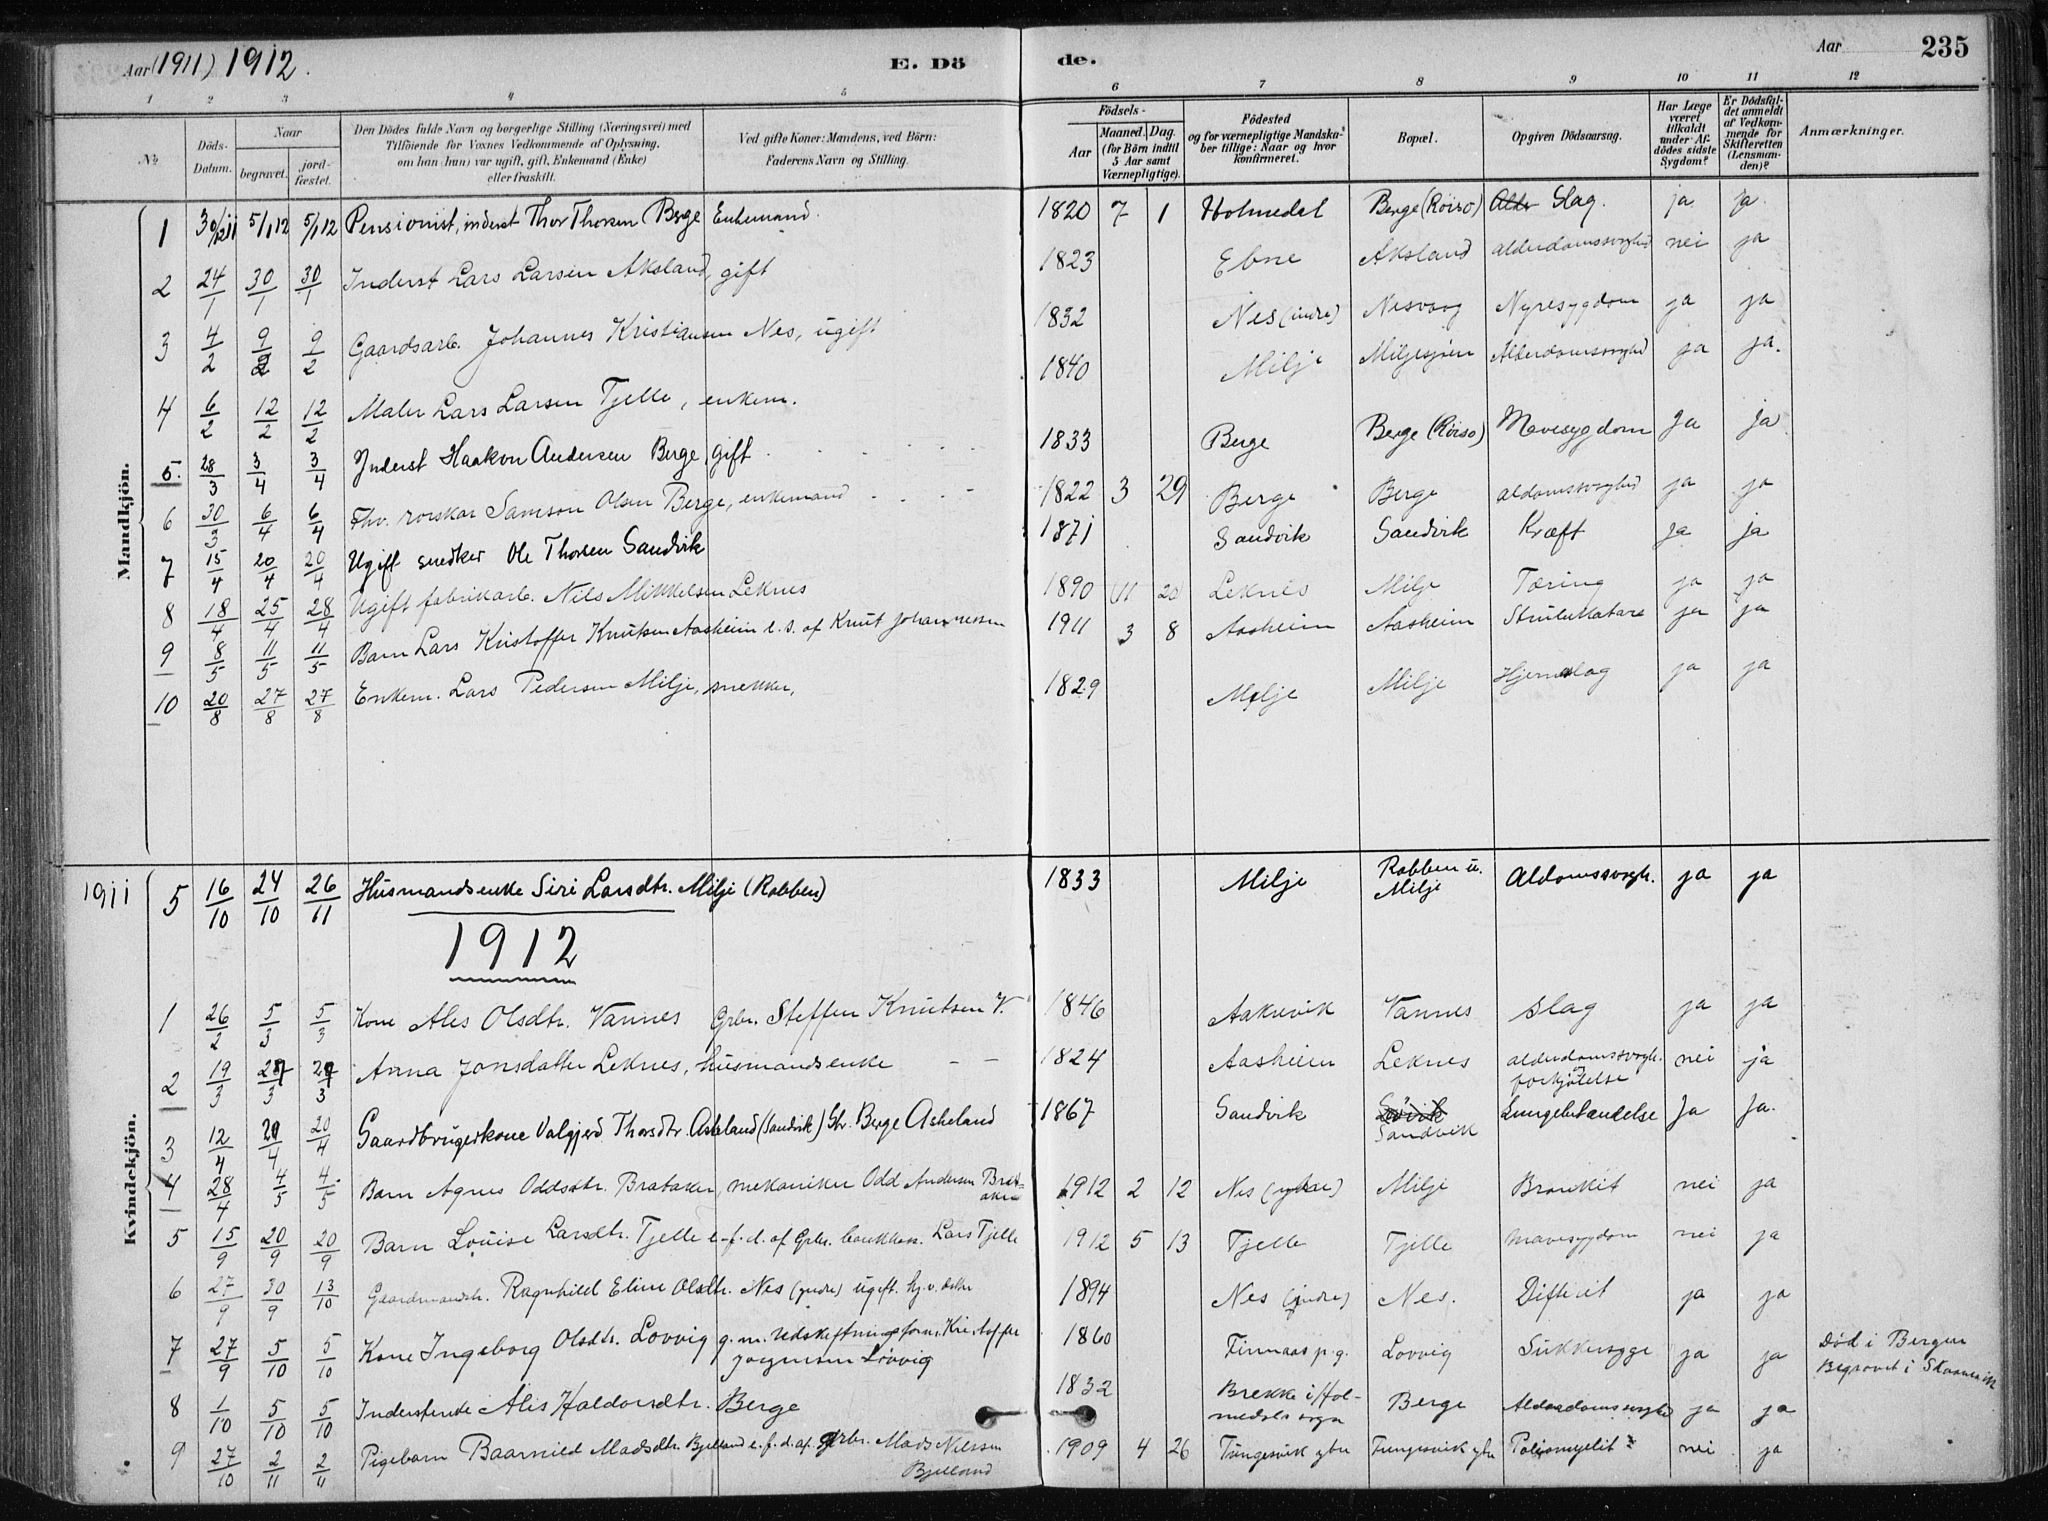 Aar (1911) 1912. E. Dö de. Aar 235
1 2 3 4 5 6 7 8 9 10 11 12
No. Döds-Datum. Naar begravet. jord-fæstet. Den Dödes fulde Navn og borgerlige Stilling (Næringsvei) med Tilföiende for Voxnes Vedkommende af Oplysning, om han (hun) var ugift, gift, Enkemand (Enke) eller fraskilt. Ved gifte Koner: Mandens, ved Börn: Faderens Navn og Stilling. Födsels- Aar Maaned. Dag. (for Börn indtil 5 Aar samt Værnepligtige). Födested og for værnepligtige Mandskaber tillige: Naar og hvor konfirmeret. Bopæl. Opgiven Dödsaarsag. Har Læge været tilkaldt under Afdödes sidste Sygdom? Er Dödsfaldet anmeldt af Vedkommende for Skifteretten (Lensmanden)? Anmærkninger.
Mandkjön.
1 30/12 11 5/1 12 5/1 12 Pensionist, inderst Thor Thorsen Berge Enkemand. 1820 7 1 Holmedal Berge (Röisö) Slag. ja ja.
2 24/1 30/1 30/1 Inderst Lars Larsen Aksland, gift 1823 Ebne Aksland alderdomssvaghed nei ja
3 4/2 9/2 9/2 Gaardsarb. Johannes Kristiansen Nes, ugift 1832 Nes (indre) Nesvaag Nyresygdom ja ja
4 6/2 12/2 12/2 Maler Lars Larsen Tjelle, enkem. 1840 Milje Miljesjöen Alderdomssvaghed ja ja.
5. 28/3 3/4 3/4 Inderst Haakon Andersen Berge, gift 1833 Berge Berge (Röisö) Mavesygdom Ja ja
6 30/3 6/4 6/4 Fhv. rorskar Samson Olsen Berge, enkemand 1822 3 29 Berge Berge aldomssvaghed ja ja
7 15/4 20/4 20/4 Ugift snedker Ole Thorsen Sandvik 1871 Sandvik Sandvik Kræft Ja ja
8 18/4 25/4 28/4 Ugift fabrikarb. Nils Mikkelsen Leknes 1890 11 20 Leknes Milje Tæring ja ja
9 8/5 11/5 11/5 Barn Lars Kristoffer Knutsen Aasheim e. s. af Knut Johannessen 1911 3 8 Aasheim Aasheim Strubekatare ja ja
10 20/8 27/8 27/8 Enkem. Lars Pedersen Milje, snekker, 1829 Milje Milje Hjerneslag ja ja
1911 5 16/10 24/10 26/11 Husmandsenke Siri Larsdtr. Milje (Robben) 1833 Milje Robben u. Milje Aldomssvagh. ja ja
1912
Kvindekjön.
1 26/2 5/3 5/3 Kone Ales Olsdtr. Vannes Grbr. Steffen Knutsen V. 1846 Aakrevik Vannes slag ja ja
2 19/3 27/3 27/3 Anna Jonsdatter Leknes, husmandsenke 1824 Aasheim Leknes alderdomssvagh. forkjölelse nei ja
3 12/4 20/4 20/4 Gaardbrugerkone Valgjerd Thorsdtr. Akseland (Sandvik) Gbr. Berge Askeland 1867 Sandvik Sandvik Lungebetændelse Ja Ja.
4 28/4 4/5 4/5 Barn Agnes Oddsdtr. Brataker, mekaniker Odd Andersen Brataker 1912 2 12 Nes (ytre) Milje Bronkit nei ja
5 15/9 20/9 20/9 Barn Louise Larsdtr. Tjelle e. f. d. af Grbr. bankkass. Lars Tjelle 1912 5 13 Tjelle Tjelle mavesygdom nei ja
6 27/9 30/9 13/10 Gaardmandsdtr. Ragnhild Eline Olsdtr. Nes (indre) ugift. hj.v. datter 1894 Nes (indre) Nes. Difterit ja ja
7 27/9 5/10 5/10 Kone Ingeborg Olsdtr. Lovvig g. m. Udskiftningsform. Kristoffer Jørgensen Løvvig 1860 Finnaas p.g. Lovvig Sukkersyge ja ja Död i Bergen Begravet i Skaanevik
8 1/10 5/10 5/10 Indersterenke Ales Haldorsdtr. Berge 1832 Brekke i Holmedals sogn Berge Alderdomssvaghed ja ja
9 27/10 2/11 2/11 Pigebarn Baarnild Madsdtr. Bjelland e. f. d. af grbr. Mads Nilssen Bjelland 1909 4 26 Tungesvik ytre Tungesvik ytre Poliomyelit nei ja